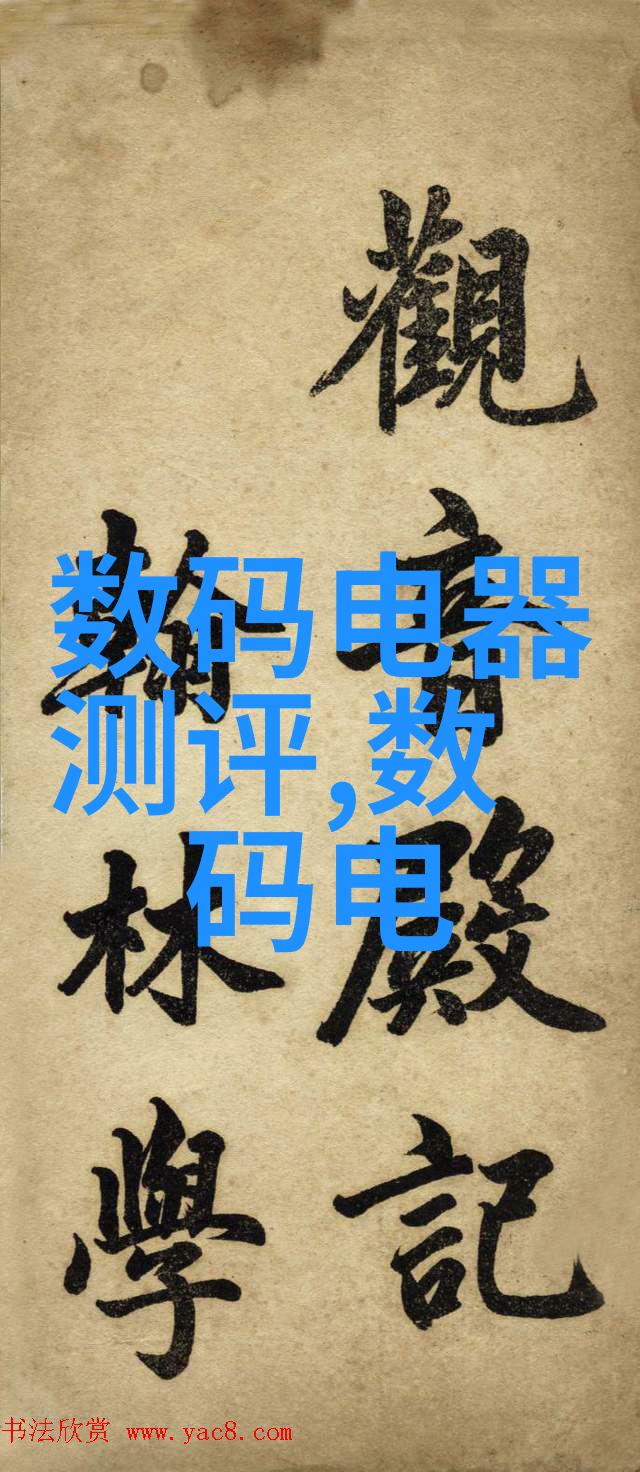 觀音殿記
翰林學
数码电器
测评,数
码电
书法欣赏 www.yac8.com